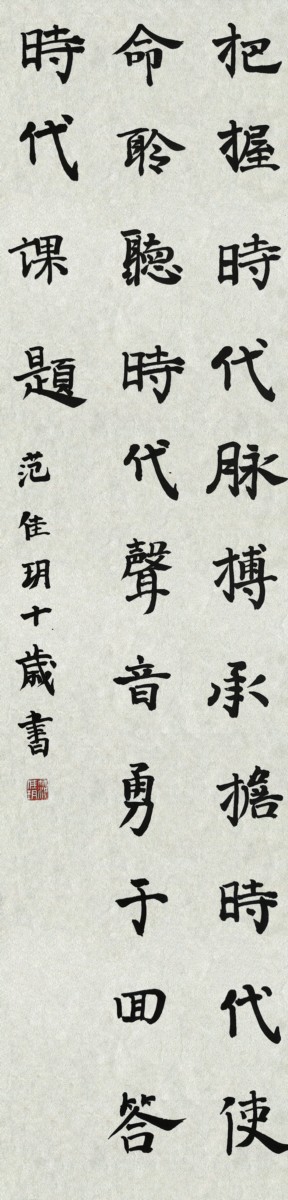 把握時代脉搏承擔時代使
命聆聽時代聲音勇于回答
時代課題
范佳玥十歲書